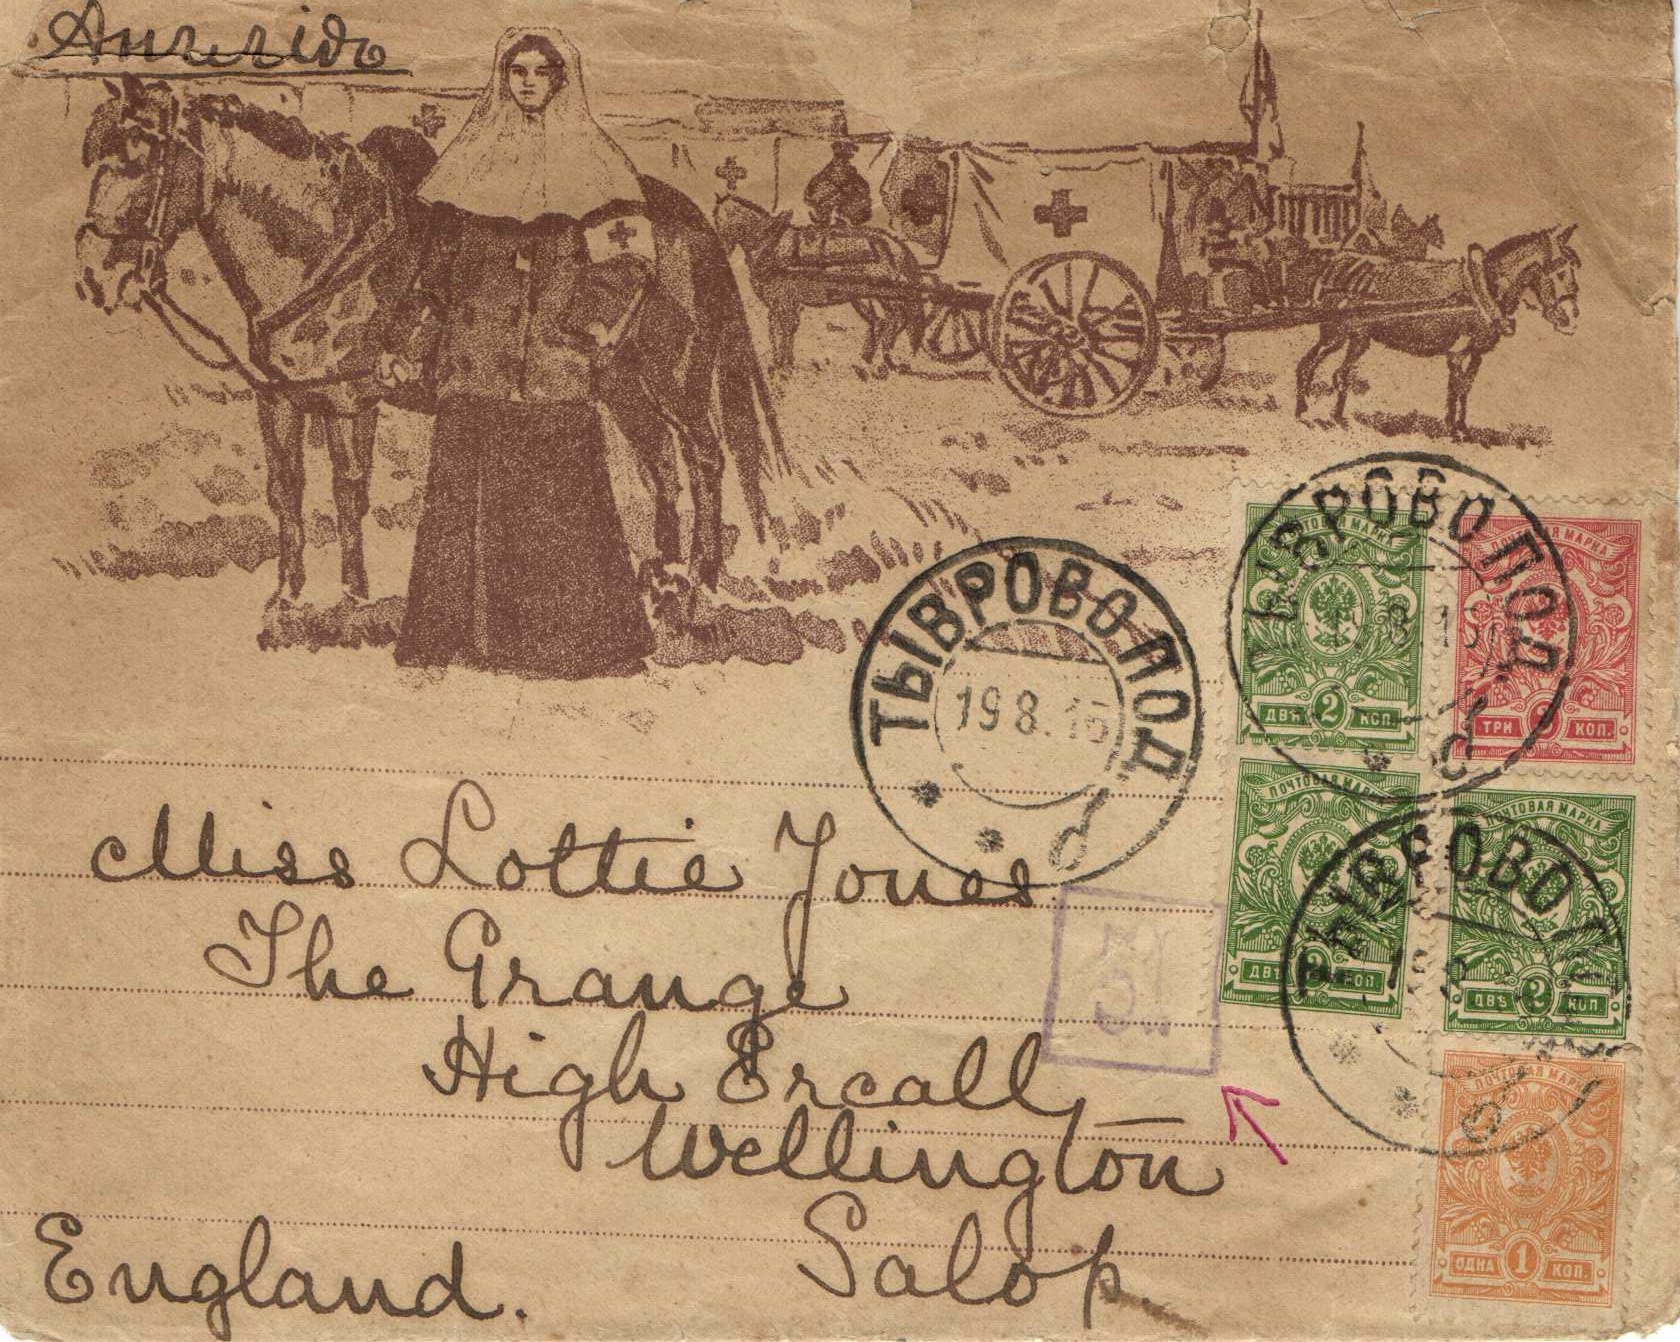 Англiя
ТЫВРОВО ПОД. б
19 8. 16
ПОЧТОВАЯ МАРКА
ДВѢ 2 КОП.
ПОЧТОВАЯ МАРКА
ТРИ 3 КОП.
ПОЧТОВАЯ МАРКА
ДВѢ 2 КОП.
ПОЧТОВАЯ МАРКА
ДВѢ 2 КОП.
ПОЧТОВАЯ МАРКА
ОДНА 1 КОП.
Miss Lottie Jones
The Grange
High Ercall
Wellington
Salop.
England.